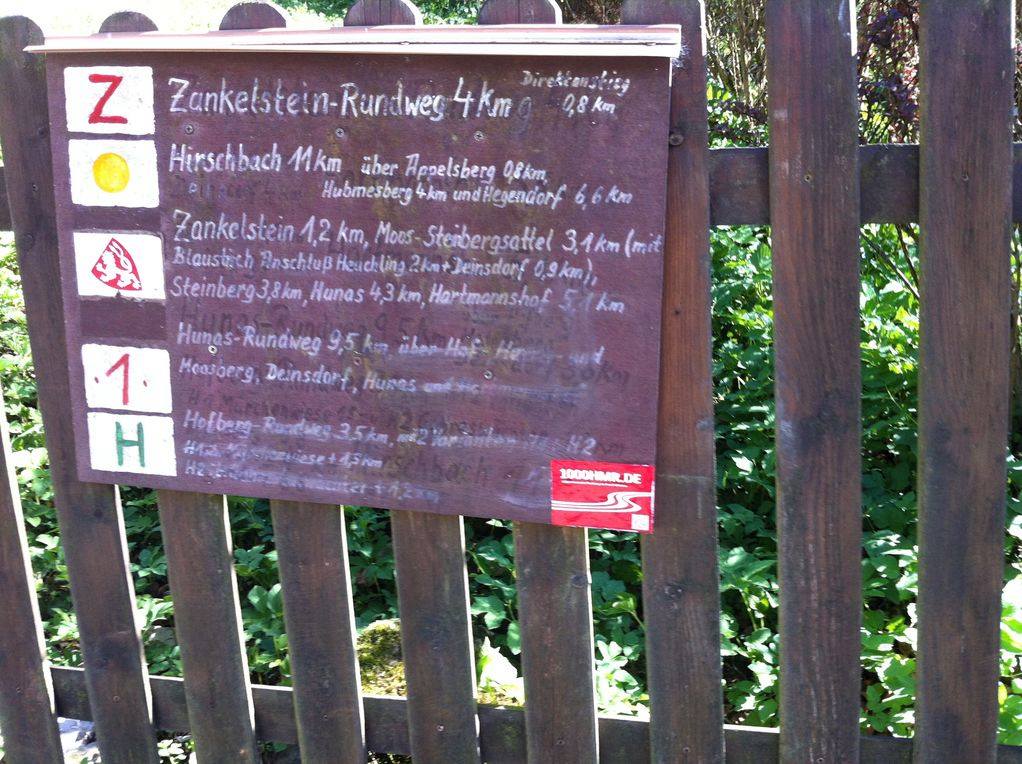 Z Zankelstein-Rundweg 4 Km Direktanstieg 0,8 km
Hirschbach 11 km über Appelsberg 0,8 km,
Hubmesberg 4 km und Hegendorf 6,6 km
Zankelstein 1,2 km, Moos-Steinbergsattel 3,1 km (mit
Blaustrich Anschluß Heuchling 2 km + Deinsdorf 0,9 km),
Steinberg 3,8 km, Hunas 4,3 km, Hartmannshof 5,1 km
·1· Hunas-Rundweg 9,5 km, über Hof- und
Moosberg, Deinsdorf, Hunas
H Hofberg-Rundweg 3,5 km, mit 2 Varianten
H1 + 1,5 km
H2 + 1,2 km
1000HMR.DE